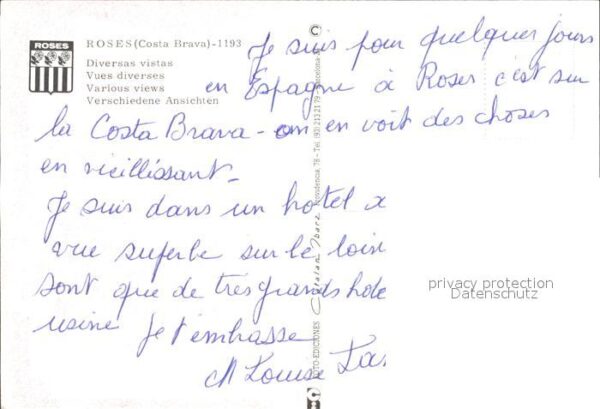 ROSES
ROSES (Costa Brava) - 1193
Diversas vistas
Vues diverses
Various views
Verschiedene Ansichten
Je suis pour quelques jours
en Espagne à Roses c'est sur
la Costa Brava - on en voit des choses
en vieillissant -
Je suis dans un hotel
vue superbe sur le loin
sont que de très grands hote
usine Je t'embrasse
M Louise
FOTO-EDICIONES
Providencia, 78 - Tel. (93) 213 21 79 - Barcelona
privacy protection
Datenschutz